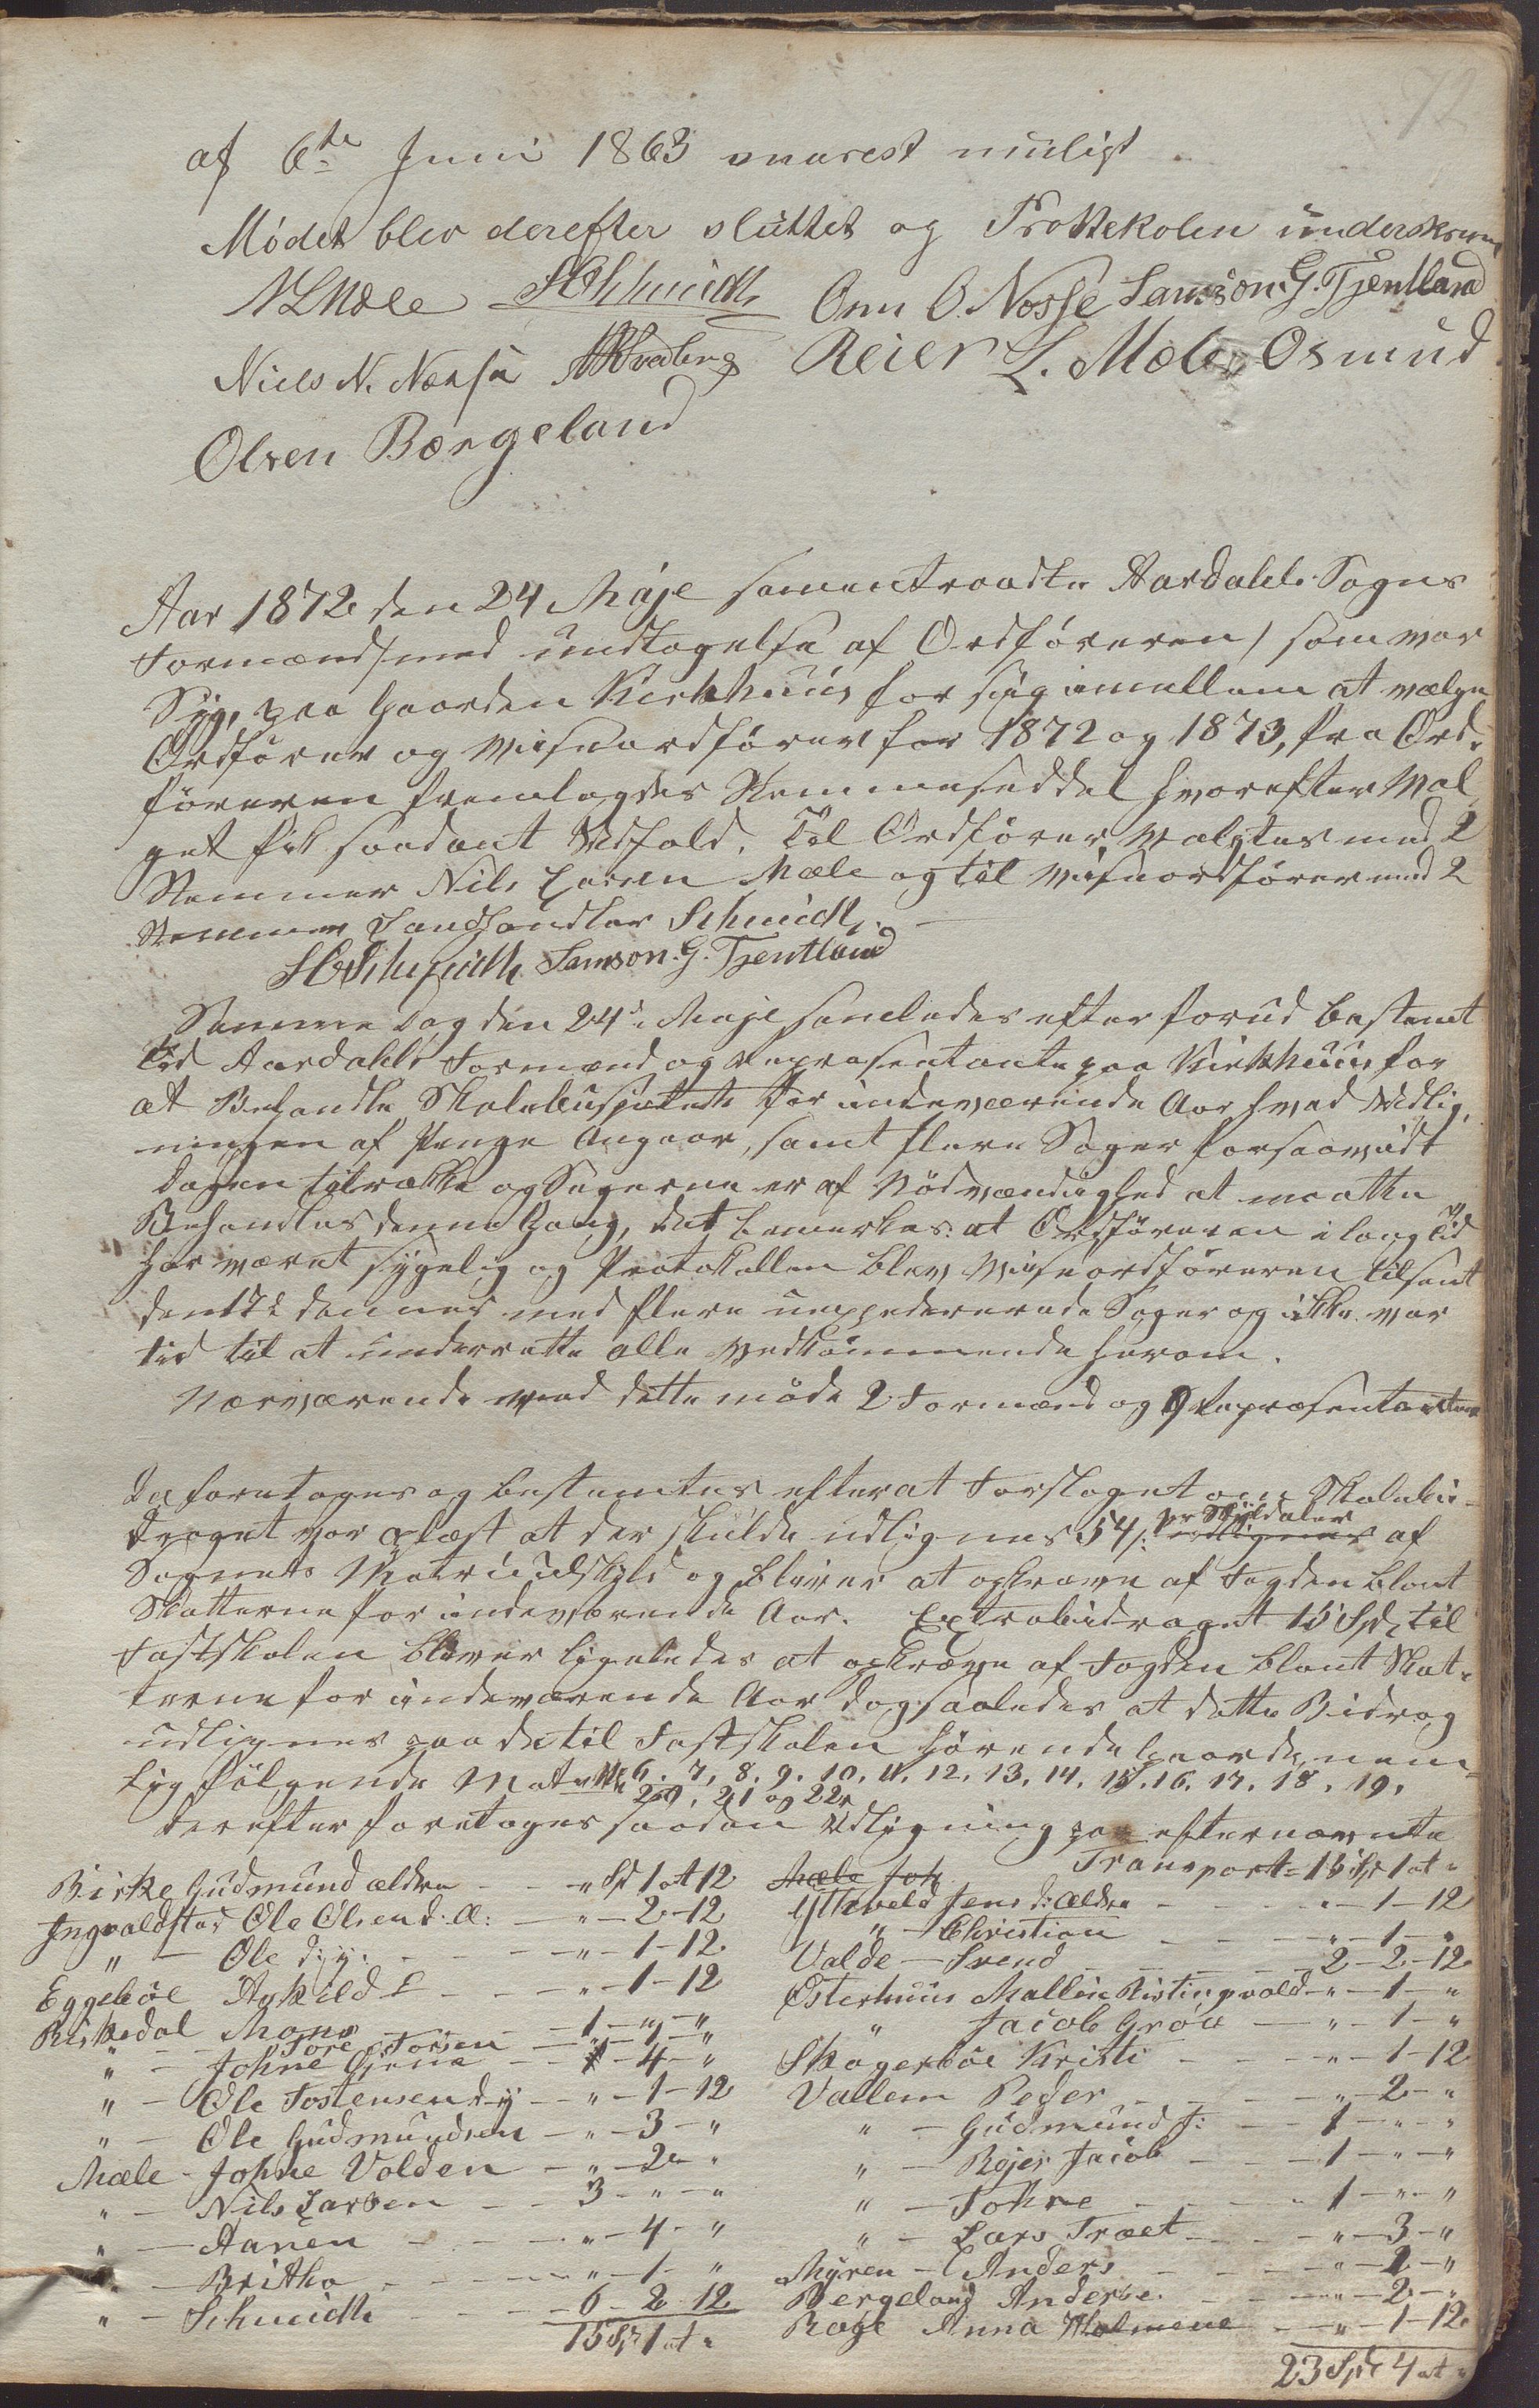 72
af 6te Juni 1863 snarest muligt
Mødet blev derefter sluttet og Prottekolen underskreven
N L Mæle H Schmidt Onn O. Nossé Samson G. Tjentland
Niels N. Næsse Reier L. Mæle Osmud
Olsen Børgeland
Aar 1872 den 24 Maje sammentraadte Aardahls Sogns
Formænd /med undtagelse af Ordføreren/ som var
Syg, paa Gaarden Kirkhuus for sig imellem at vælge
Ordfører og Viseordfører for 1872 og 1873, fra Ord-
føreren fremlagdes Stemmeseddel hvorefter Val
get fik saadant Udfald. Til Ordfører valgtes med 2
Stemmer Nils Larsen Mæle og til Viseordfører med 2
Stemmer Landhandler Schmidt. —
H Schmidt Samson. G. Tjentland
Samme Dag den 24de Maje samledes efter forud bestemt
Tid Aardahls Formænd og Representante paa Kirkhuus for
at Behandle Skolebusjettet for indeværende Aar hvad Udlig,
ningen af Penge Angaar, samt flere Sager forsaavidt
dagen tilrække og Sagerne er af Nødvændighed at maatte
Behandles denne Gang, det bemerkes: at Ordføreren i lang Tid
har været sygelig og Protokollen blev Viseordføreren tilsent
den 17de dennes med flere unexpederede Sager og ikke var
tid til at underrette alle Vedkommende herom.
Nærværende ved dette møde 2 Formænd og 9 Repræsentanter
Da foretoges og bestemtes efter at Forslaget om Skolebi-
draget var oplæst at der skulde udlignes 54 s: pr Skyldaler udlignes af
Sognets Matriculskyld og bliver at opkræve af Fogden blant
Skatterne for indeværende Aar. Extrabidraget 15 Spd til
Fastskolen bliver ligeledes at opkræve af Fogden blant Skat-
terne for indeværende Aar dog saaledes at dette Bidrag
udlignes paa de til Fastskolen hørende Gaarde, nem-
lig følgende Matr № 6. 7. 8. 9. 10. 11. 12. 13. 14. 15. 16. 17. 18. 19.
20. 21 og 22.
derefter foretoges saadan Udligning paa efternævnte
Birke Gudmund ældre — " Spd 1 ort 12
Ingvaldstad Ole Olsen d: Æ: — " — 2 — 12
" — Ole d: y. — " — 1 — 12
Eggebøe Askild L — " — 1 — 12
Riskedal Mons — 1 — " — "
" — Tore Torsen — " — 1 — "
" — Johne Gjene — " — 4 — "
" — Ole Tostensen d y — " — 1 — 12
" — Ole Gudmundsen — " — 3 — "
Mæle — Johne Volden — " — 2 — "
" — Nils Larsen — 3 — " — "
" — Aanen — " — 4 — "
" — Britha — " — 1 — "
" — Schmidt — 6 — 2 — 12
15 Spd 1 ort "
Mæle Joh Transport = 15 Spd 1 ort "
Jens d: Ældre — " — 1 — 12
" — Christian — " — 1 — "
Valde — Svend — 2 — 2 — 12
Østerhuus Mallin Ristingvold — " — 1 — "
" Jacob Grøw — " — 1 — "
Skogerbøe Kristi — " — 1 — 12
Vallem Peder — " — 2 — "
" — Gudmund J: — 1 — " — "
" — Rejer Jacob — 1 — " — "
" — Johne — 1 — " — "
" — Lars Træet — " — 3 — "
Myren — Anders — " — 2 — "
Bergeland Anders — " — 2 — "
Roge Anna Holmene — " — 1 — 12
23 Spd 4 ort "